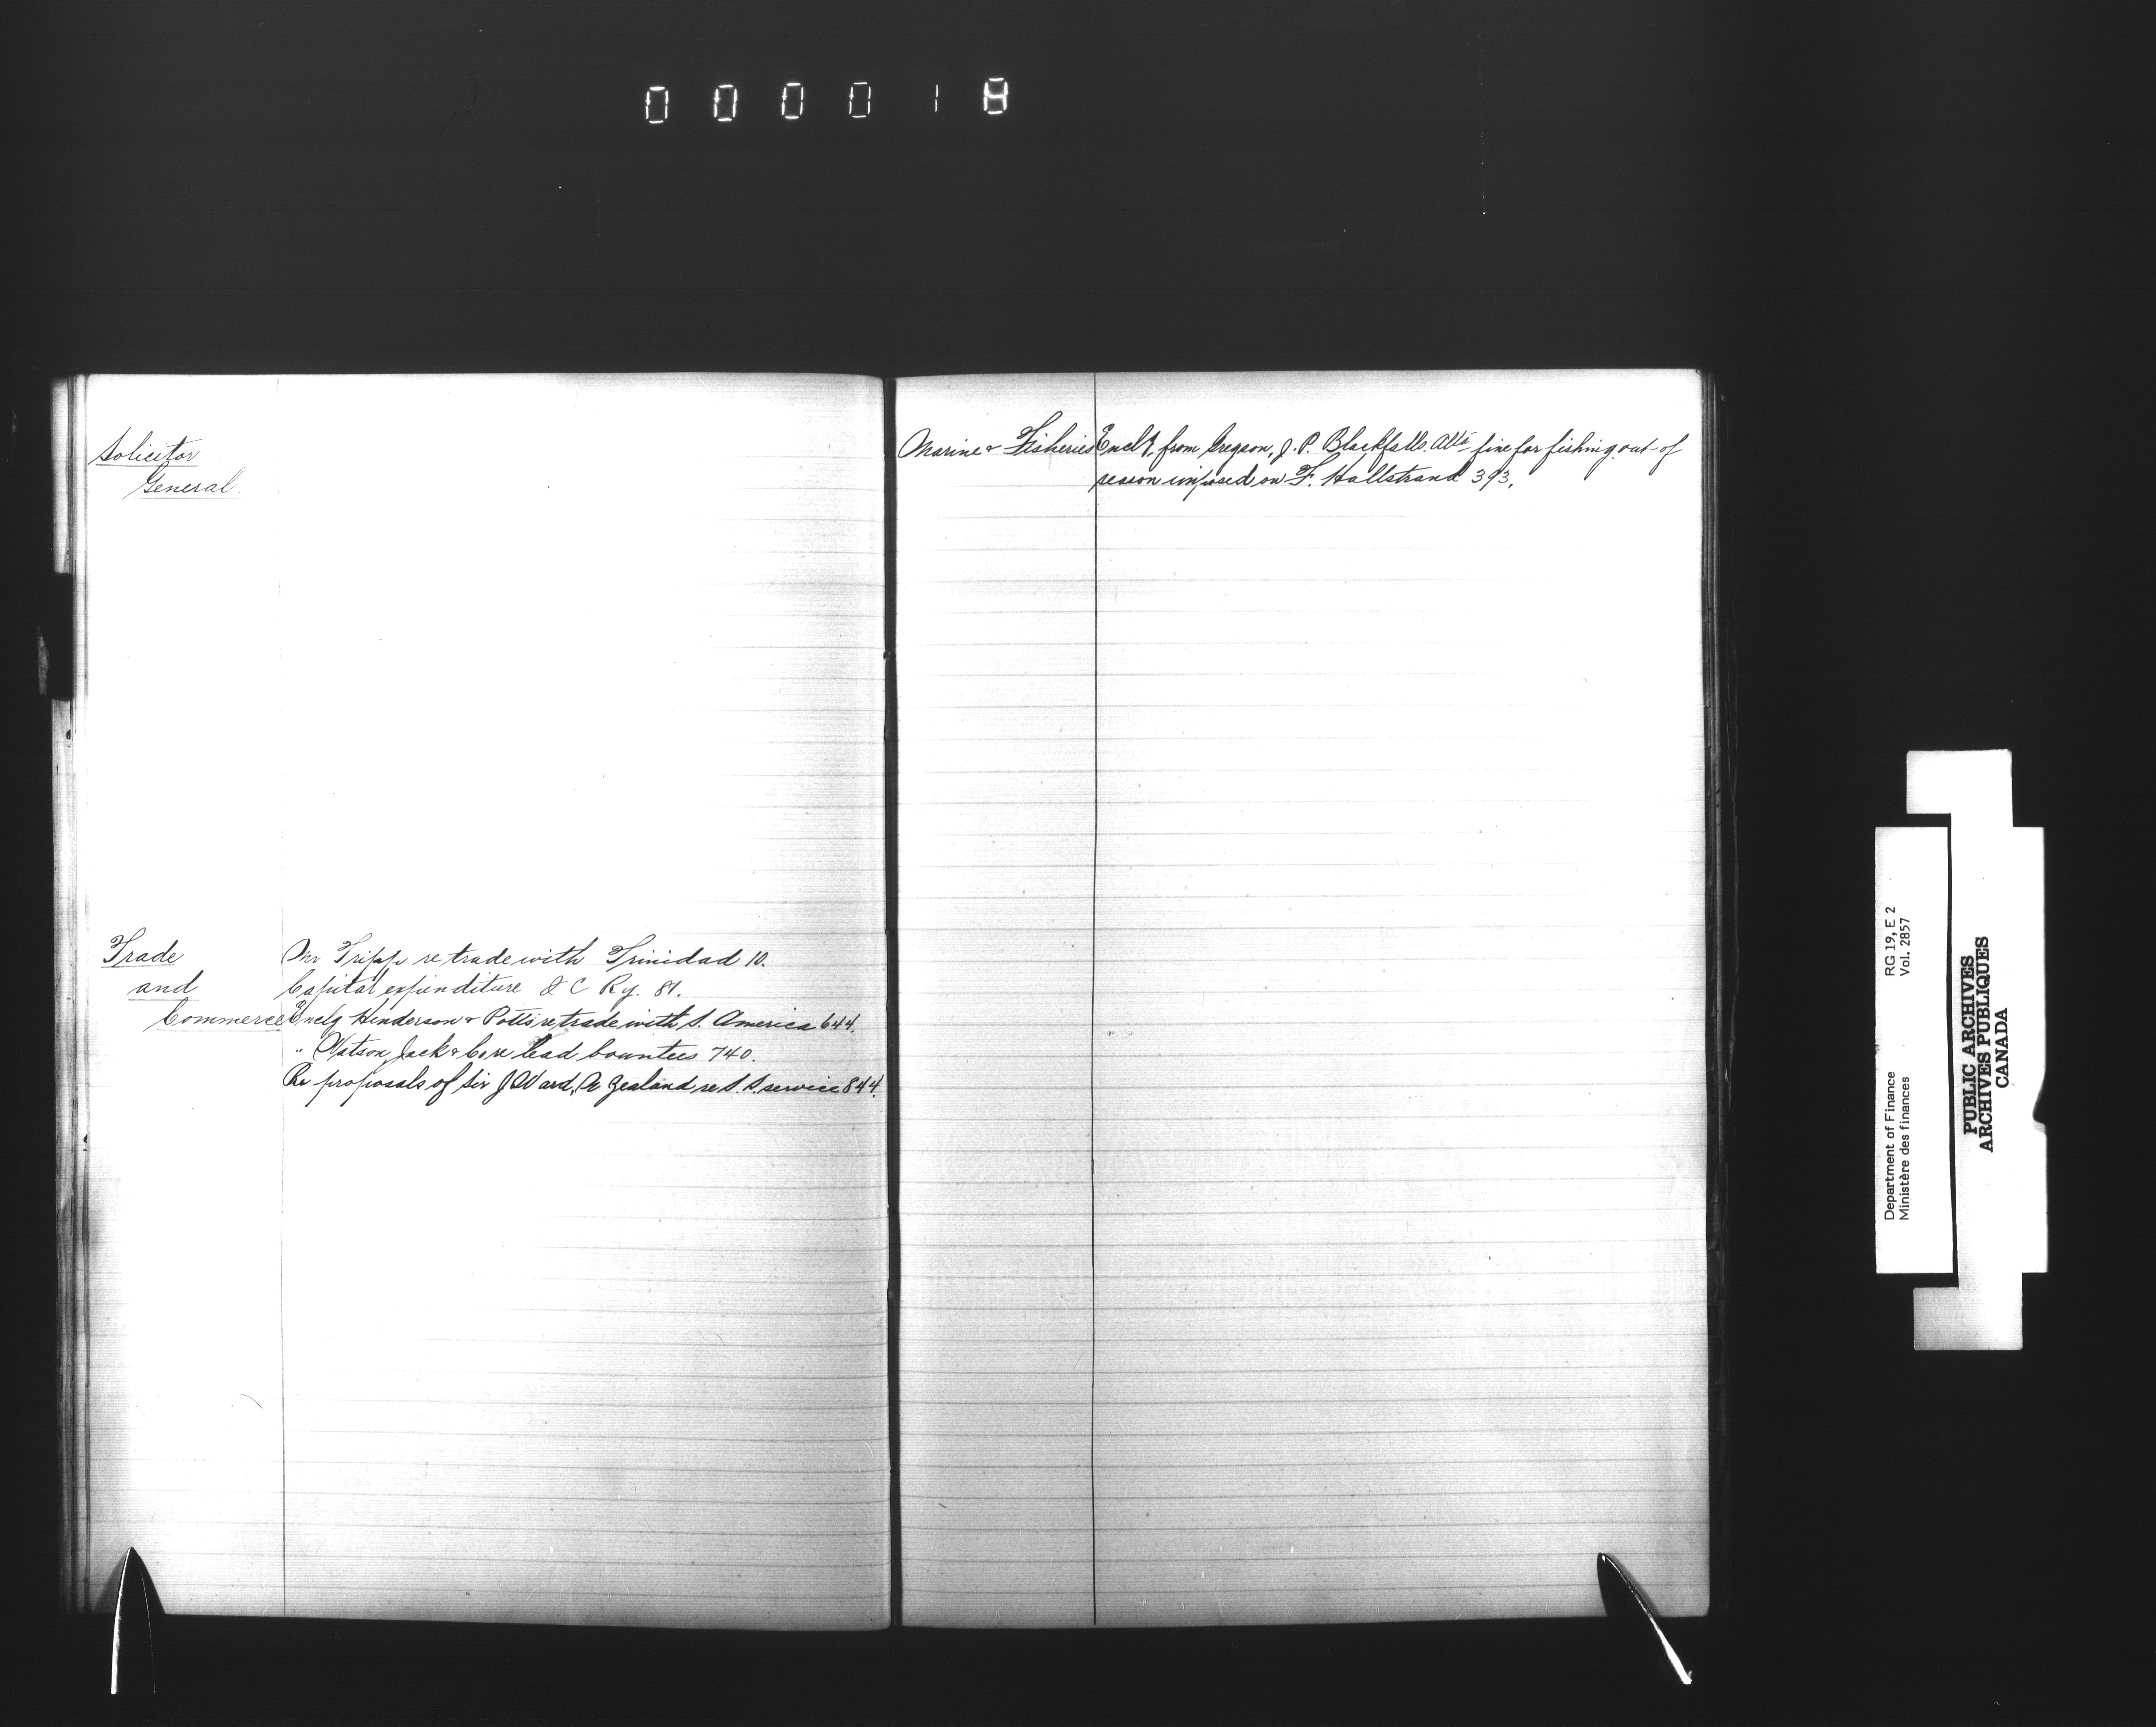 000018
Solicitor
General.
Trade
and
Commerce
Mr Tripp re trade with Trinidad 10.
Capital expenditure I C Ry. 81.
Enclg Henderson & Potts re trade with S. America 644.
" Watson Jack & Co re lead bounties 740.
Re proposals of Sir J Ward, N Zealand re S.S. service 844.
Marine & Fisheries
from Gregson, J. P. Blackfalds. Alta fine for fishing out of
season imposed on F. Hallstrand 393.
Department of Finance
Ministère des finances
RG 19, E 2
Vol. 2857
PUBLIC ARCHIVES
ARCHIVES PUBLIQUES
CANADA